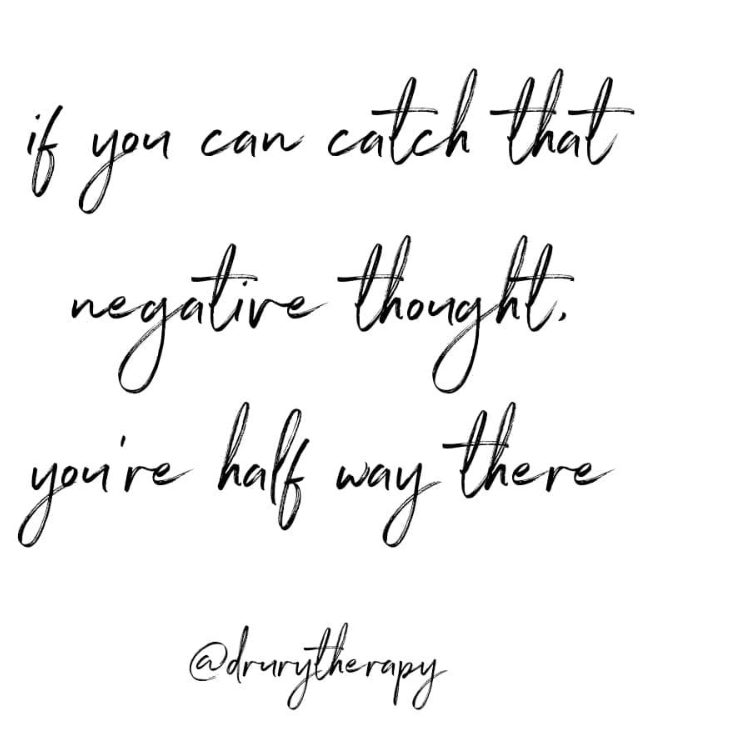 if you can catch that
negative thought,
you're half way there
@drurytherapy